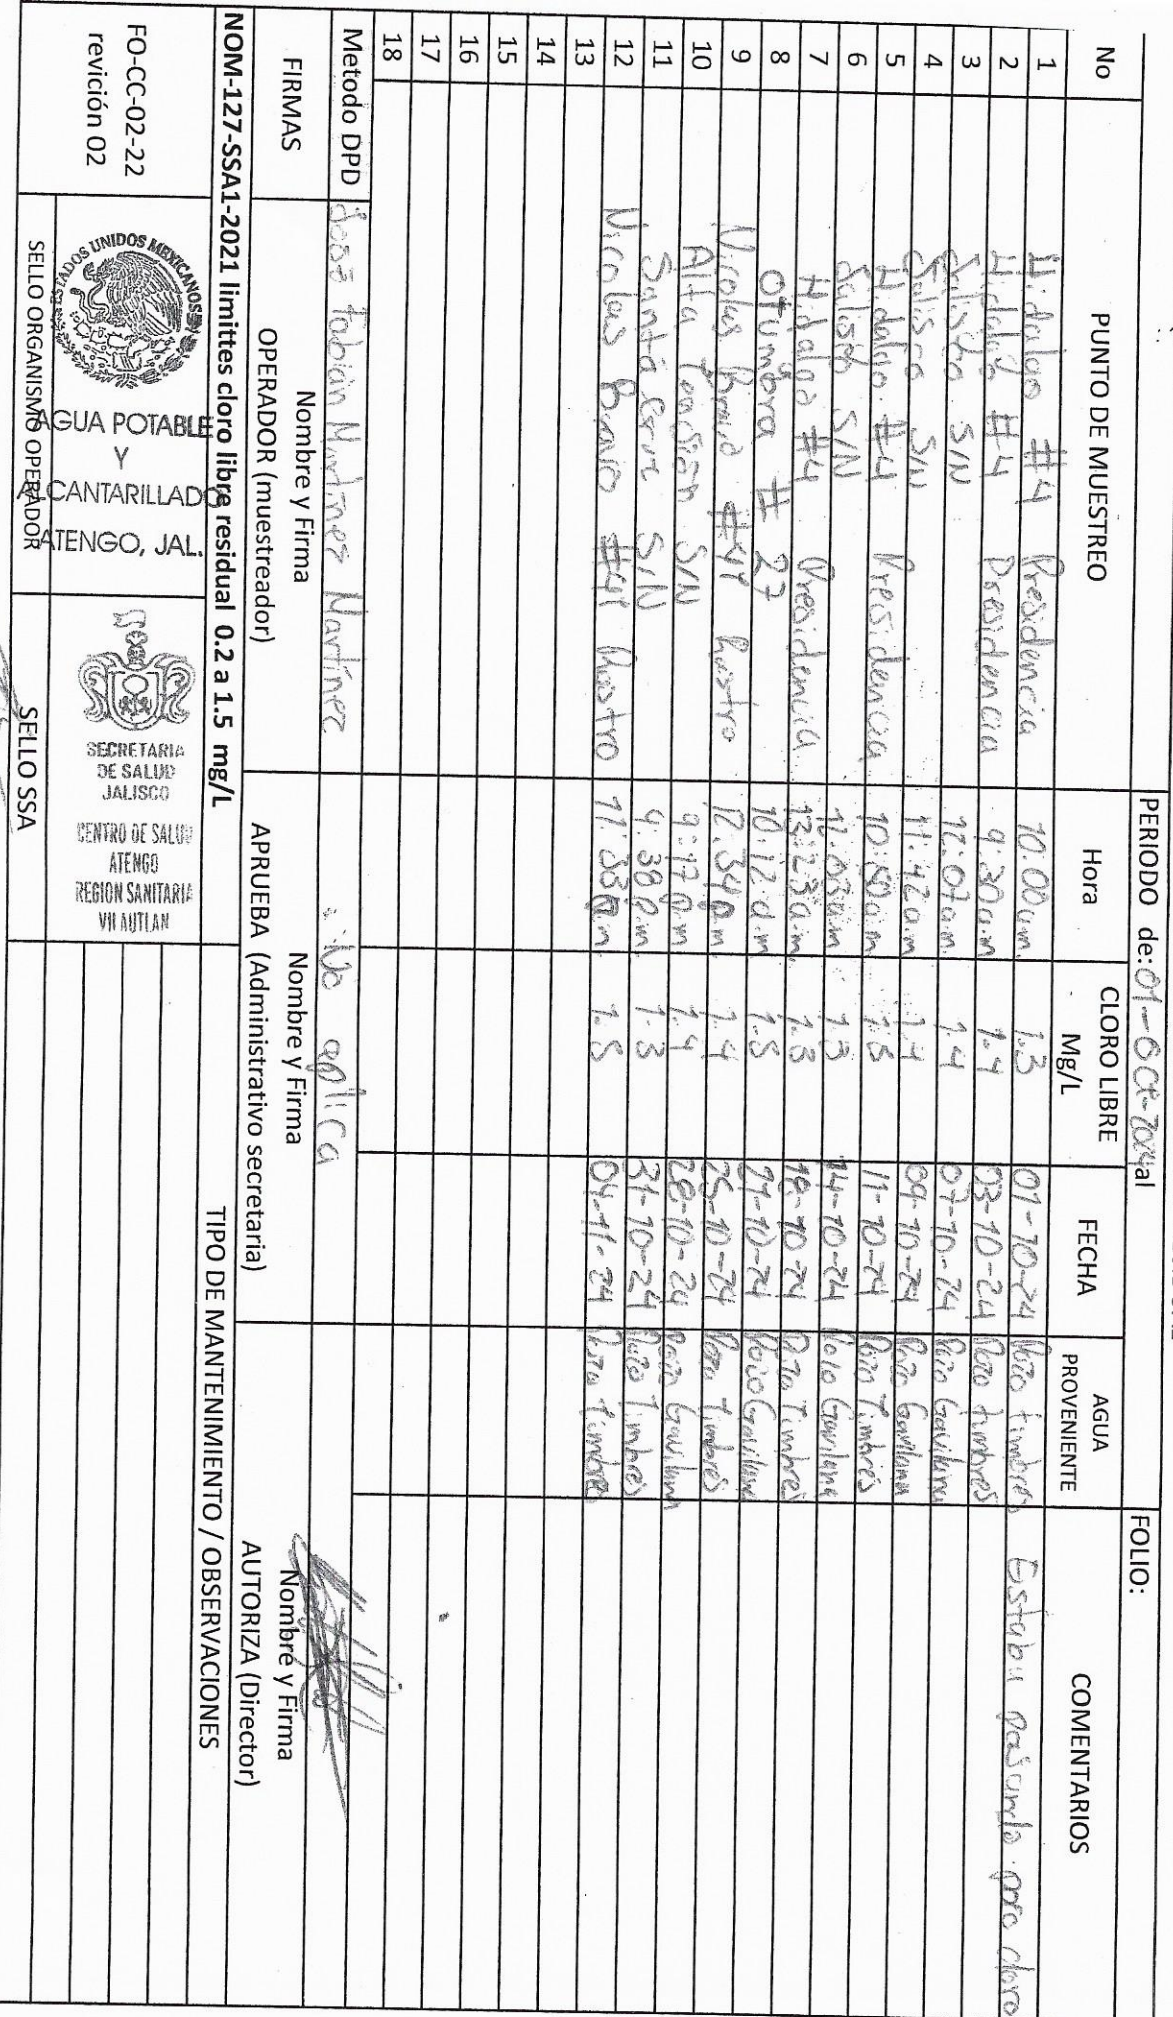 PERIODO de: 01-Oct-2024 al FOLIO:
No PUNTO DE MUESTREO Hora CLORO LIBRE Mg/L FECHA AGUA PROVENIENTE COMENTARIOS
1 Hidalgo #4 Presidencia 10:00 a.m. 1.3 01-10-24 Pozo timbres
2 Hidalgo #4 Presidencia 9:30 a.m 1.4 03-10-24 Pozo timbres Estaba pasando poco cloro
3 Jalisco S/N 12:07 a.m. 1.4 07-10-24 Pozo Gavilana
4 Jalisco S/N 11:42 a.m 1.4 09-10-24 Pozo Gavilana
5 Hidalgo #4 Presidencia a.m 11-10-24 Pozo Timbres
6 Jalisco S/N 14-10-24 Pozo Gavilana
7 Hidalgo #4 Presidencia 13:23 a.m. 18-10-24 Pozo Timbres
8 Otumbra # 27 10:12 a.m 1.5 21-10-24 Pozo Gavilana
9 Nicolas Bravo Rastro 12:34 p.m 1.4 25-10-24 Pozo timbres
10 Alta Tension S/N 9:17 p.m 1.4 28-10-24 Pozo Gavilana
11 Santa Cruz S/N 9:38 p.m 1.3 31-10-24 Pozo Timbres
12 Nicolas Bravo Rastro 1.5 04-11-24 Pozo timbres
13
14
15
16
17
18
Metodo DPD José Fabián Martínez Martínez No aplica
FIRMAS Nombre y Firma Nombre y Firma Nombre y Firma
OPERADOR (muestreador) APRUEBA (Administrativo secretaria) AUTORIZA (Director)
NOM-127-SSA1-2021 limittes cloro libre residual 0.2 a 1.5 mg/L TIPO DE MANTENIMIENTO / OBSERVACIONES
FO-CC-02-22
revición 02
ESTADOS UNIDOS MEXICANOS
AGUA POTABLE
Y
ALCANTARILLADO
ATENGO, JAL.
SELLO ORGANISMO OPERADOR
SECRETARIA
DE SALUD
JALISCO
CENTRO DE SALUD
ATENGO
REGION SANITARIA
VII AUTLAN
SELLO SSA